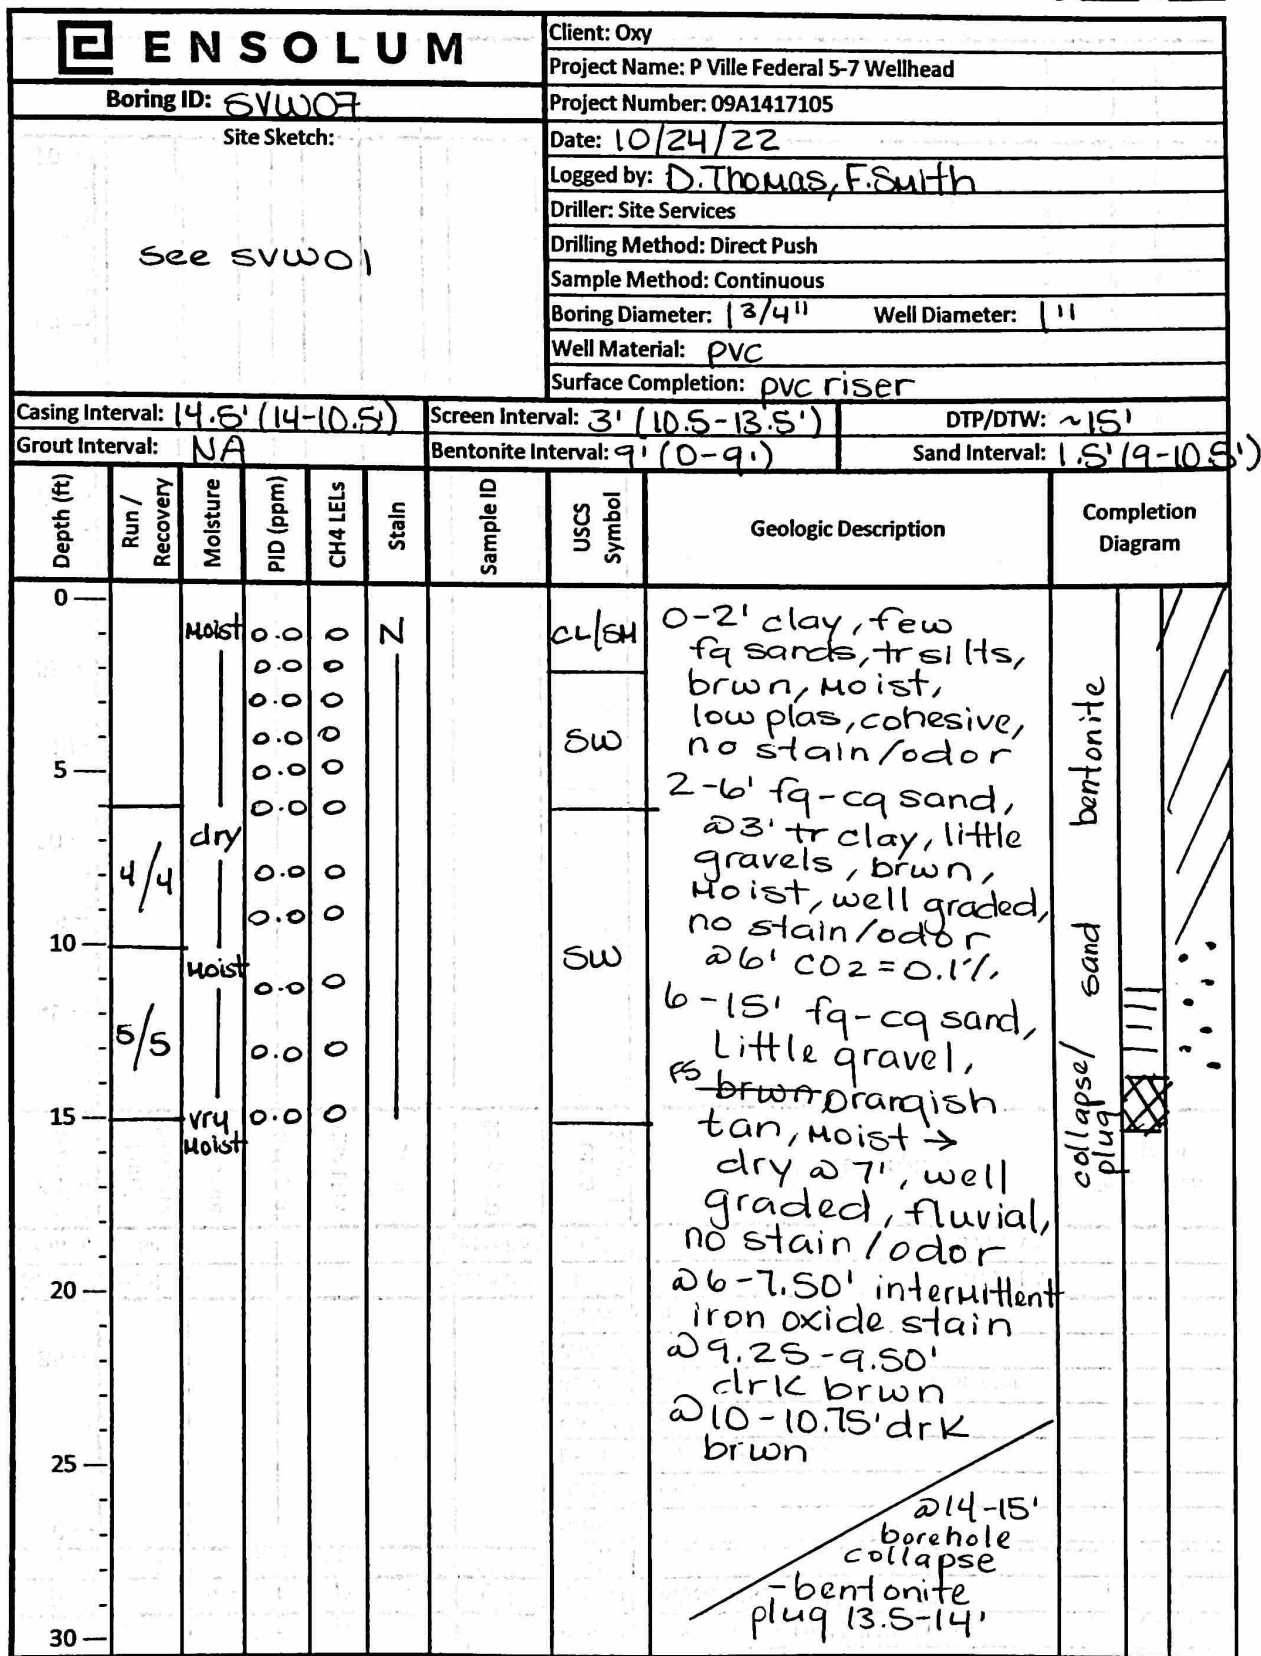 ENSOLUM
Boring ID: SVW07
Site Sketch:
see SVW01
Client: Oxy
Project Name: P Ville Federal 5-7 Wellhead
Project Number: 09A1417105
Date: 10/24/22
Logged by: D.Thomas, F.Smith
Driller: Site Services
Drilling Method: Direct Push
Sample Method: Continuous
Boring Diameter: 1 3/4" Well Diameter: 1"
Well Material: PVC
Surface Completion: pvc riser
Casing Interval: 14.5' (14-10.5') Screen Interval: 3' (10.5-13.5') DTP/DTW: ~15'
Grout Interval: NA Bentonite Interval: 9' (0-9') Sand Interval: 1.5' (9-10.5')
Depth (ft) Run / Recovery Moisture PID (ppm) CH4 LELs Stain Sample ID USCS Symbol Geologic Description Completion Diagram
0
5
10
15
20
25
30
4/4
5/5
Moist
dry
Moist
vry
Moist
0.0 0
0.0 0
0.0 0
0.0 0
0.0 0
0.0 0
0.0 0
0.0 0
0.0 0
0.0 0
0.0 0
N
CL/SM
SW
SW
0-2' clay, few
fg sands, tr silts,
brwn, moist,
low plas, cohesive,
no stain/odor
2-6' fg-cg sand,
@3' tr clay, little
gravels, brwn,
moist, well graded,
no stain/odor
@6' CO2=0.1%
6-15' fg-cg sand,
Little gravel,
FS brwn orangish
tan, moist →
dry @ 7', well
graded, fluvial,
no stain/odor
@6-7.50' intermittent
iron oxide stain
@9.25-9.50'
drk brwn
@10-10.75' drk
brwn
@14-15'
borehole
collapse
-bentonite
plug 13.5-14'
bentonite
sand
collapse/
plug